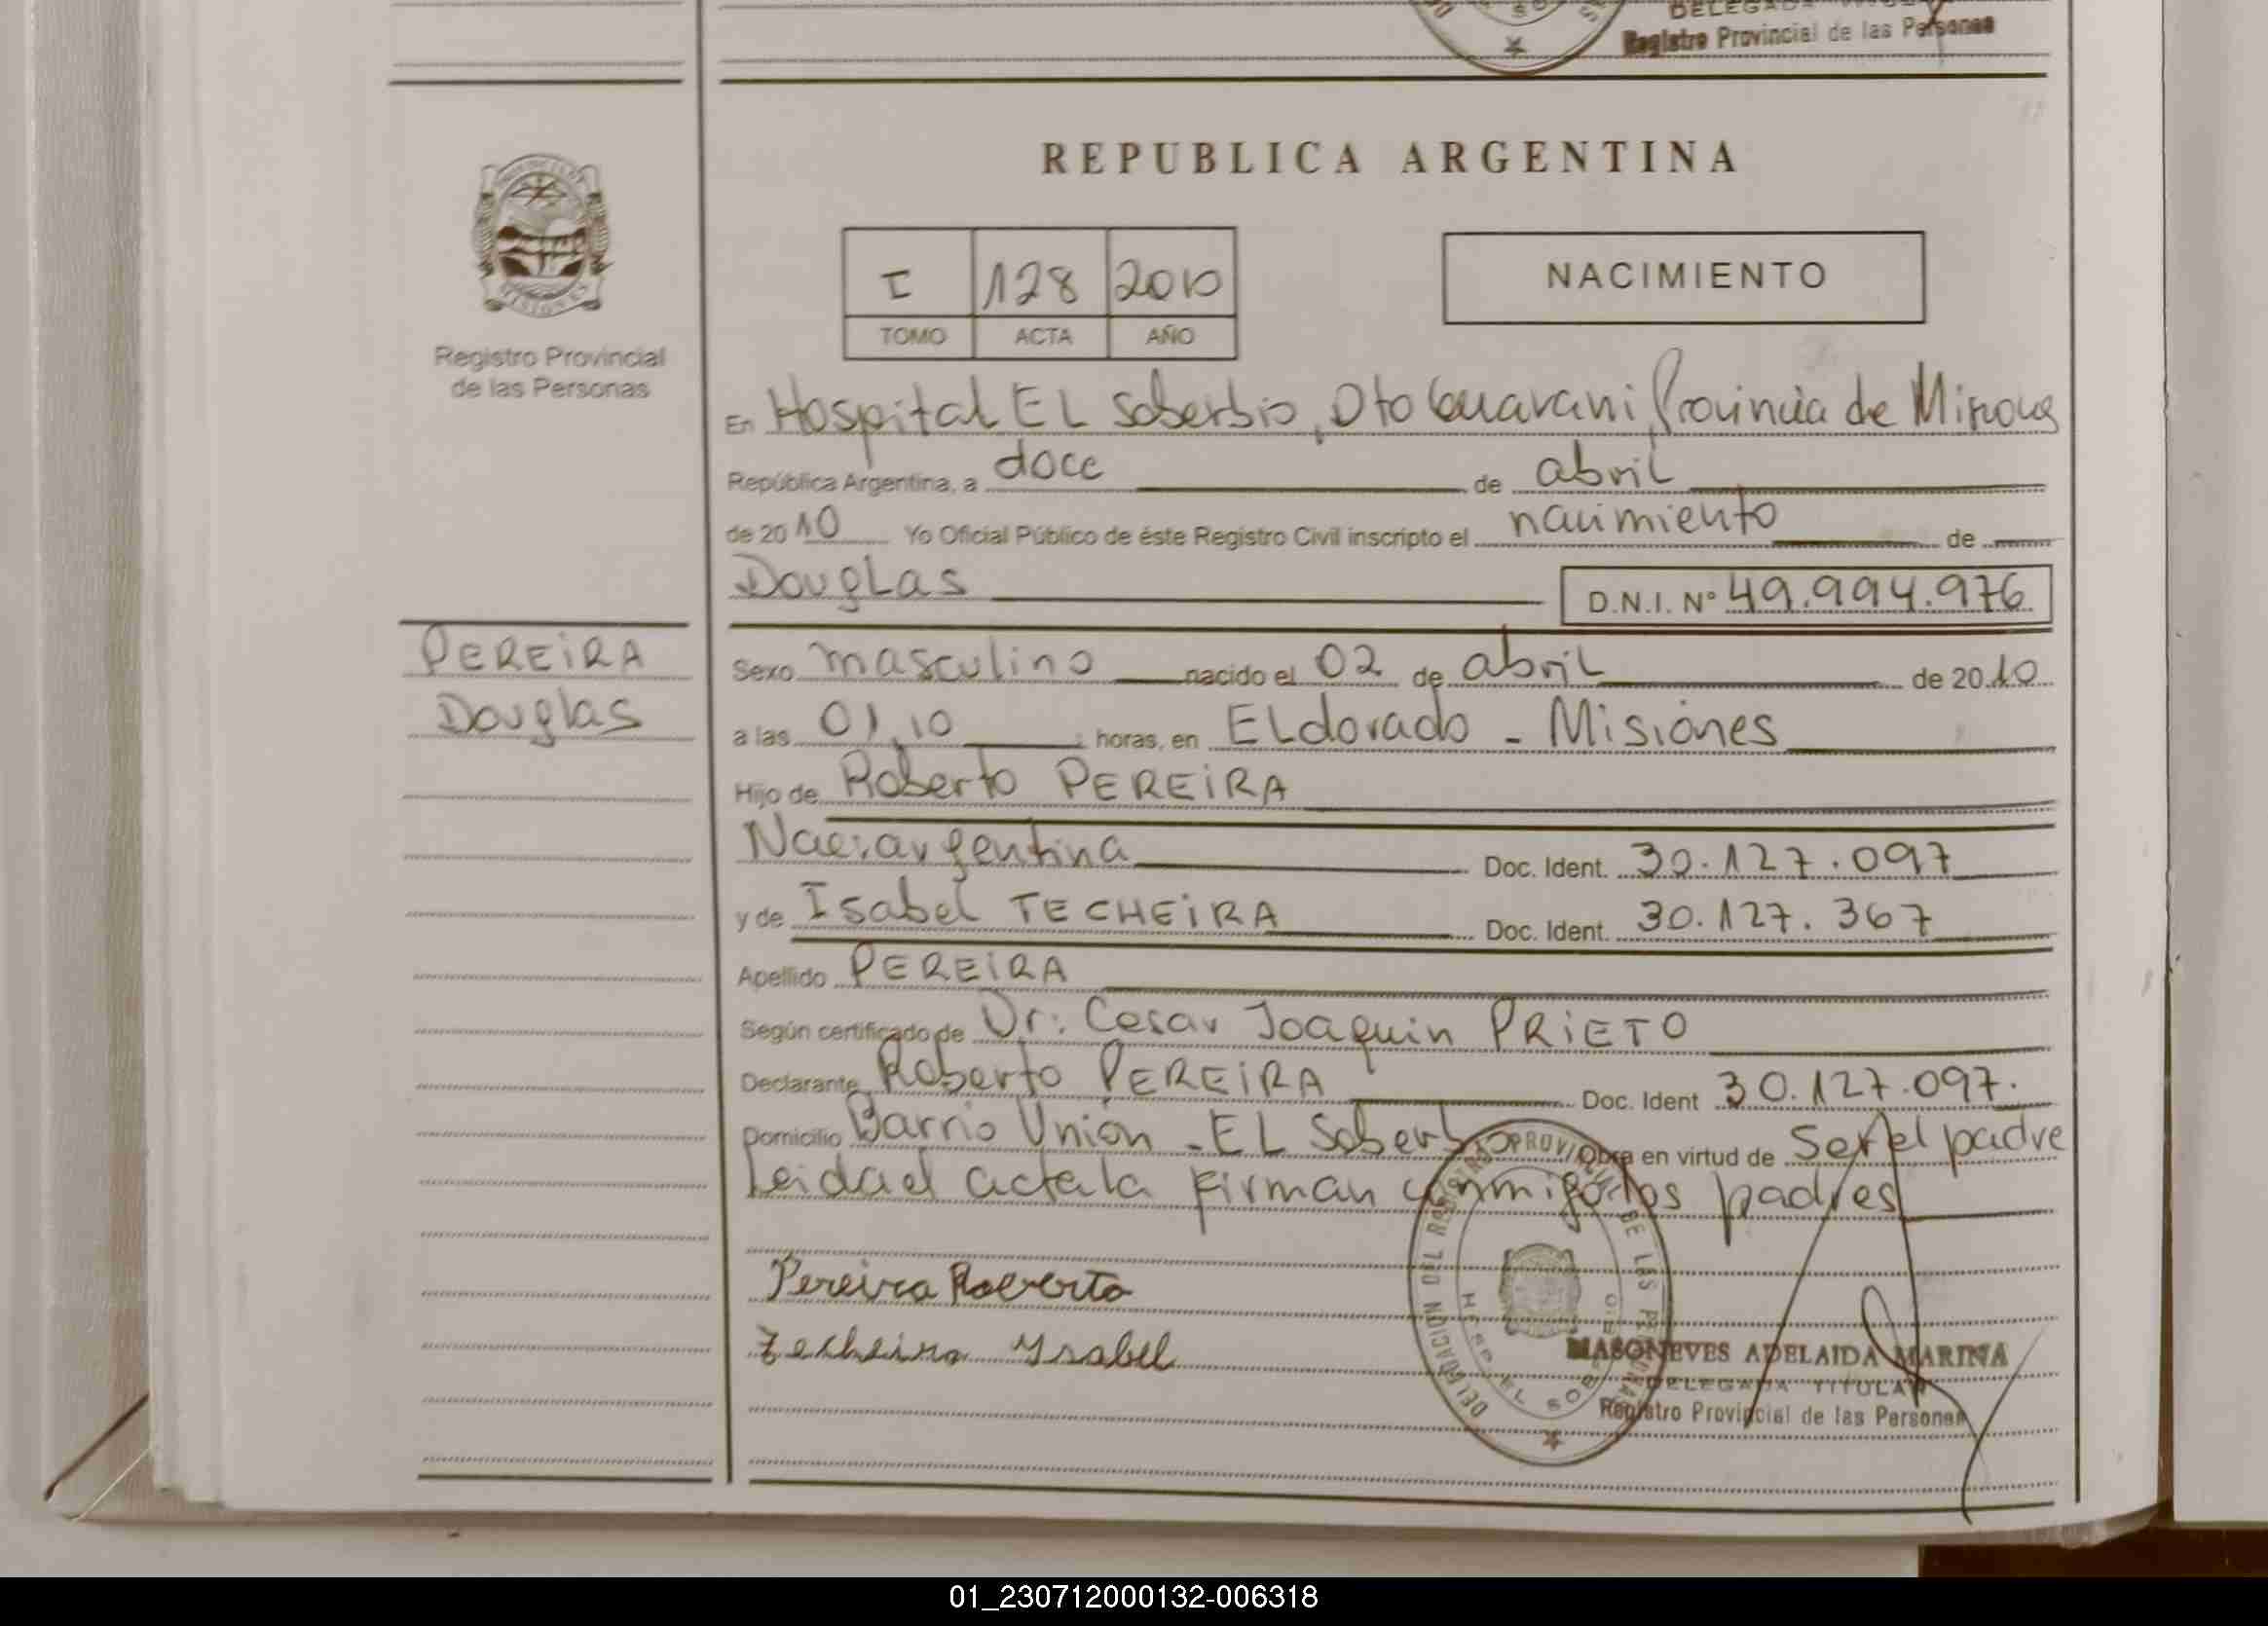 DELEGADA
Registro Provincial de las Personas
REPUBLICA ARGENTINA
I 128 2010
TOMO ACTA AÑO
NACIMIENTO
Registro Provincial
de las Personas
En Hospital EL Soberbio, Dto Guarani, Provincia de Misiones
República Argentina, a doce de abril
de 2010 Yo Oficial Público de éste Registro Civil inscripto el nacimiento de
Douglas D.N.I. N° 49.994.976
PEREIRA
Douglas
Sexo masculino nacido el 02 de abril de 2010
a las 01,10 horas, en ELdorado - Misiones
Hijo de Roberto PEREIRA
Nac: argentina Doc. Ident. 30.127.097
y de Isabel TECHEIRA Doc. Ident. 30.127.367
Apellido PEREIRA
Según certificado de Dr: Cesar Joaquin PRIETO
Declarante Roberto PEREIRA Doc. Ident 30.127.097.
Domicilio Barrio Unión - EL Soberbio Obra en virtud de Ser el padre
Leida el acta la firman conmigo los padres
Pereira Roberto
Techeira Ysabel
DELEGACION DEL REGISTRO PROVINCIAL DE LAS PERSONAS
HOSP. EL SOBERBIO
MASONEVES ADELAIDA MARINA
DELEGADA TITULAR
Registro Provincial de las Personas
01_230712000132-006318